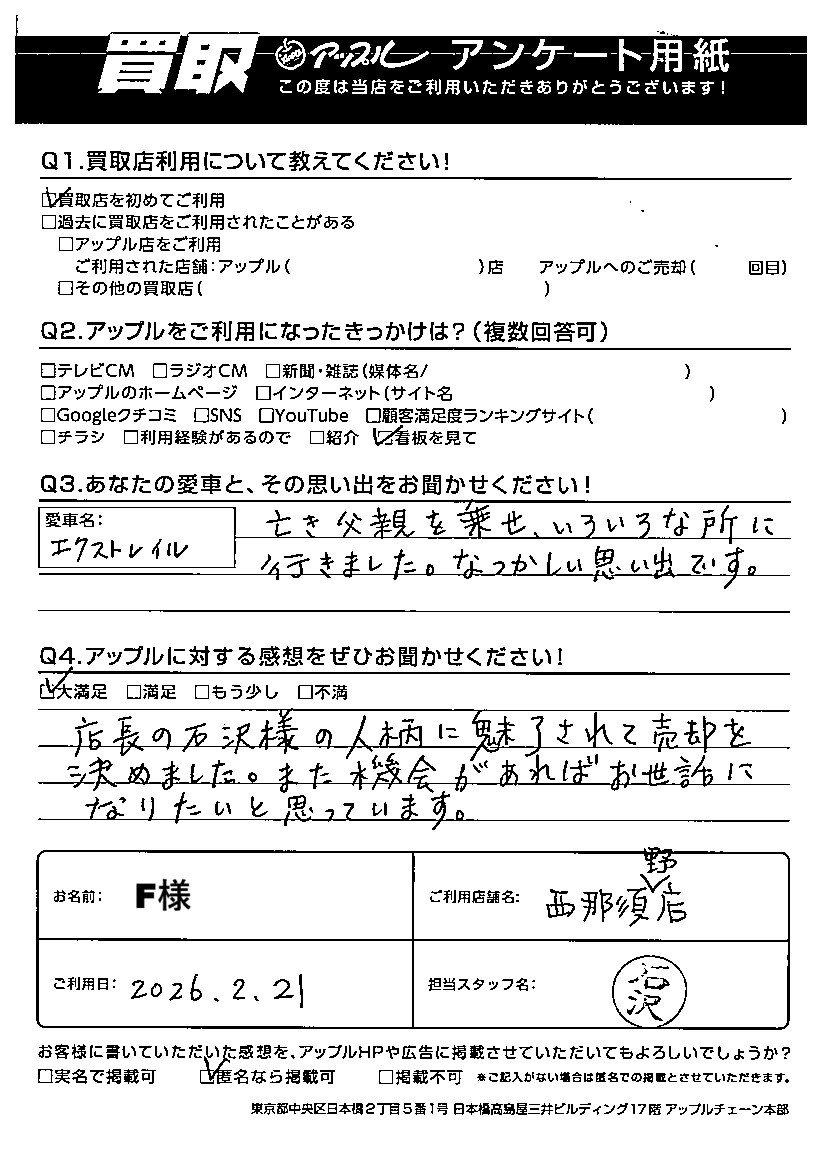 買取 アップル アンケート用紙
この度は当店をご利用いただきありがとうございます!
Q1.買取店利用について教えてください!
☑買取店を初めてご利用
□過去に買取店をご利用されたことがある
□アップル店をご利用
ご利用された店舗:アップル( )店 アップルへのご売却( 回目)
□その他の買取店( )
Q2.アップルをご利用になったきっかけは?(複数回答可)
□テレビCM □ラジオCM □新聞・雑誌(媒体名/ )
□アップルのホームページ □インターネット(サイト名 )
□Googleクチコミ □SNS □YouTube □顧客満足度ランキングサイト( )
□チラシ □利用経験があるので □紹介 ☑看板を見て
Q3.あなたの愛車と、その思い出をお聞かせください!
愛車名:
エクストレイル
亡き父親を乗せ、いろいろな所に
行きました。なつかしい思い出です。
Q4.アップルに対する感想をぜひお聞かせください!
☑大満足 □満足 □もう少し □不満
店長の石沢様の人柄に魅了されて売却を
決めました。また機会があればお世話に
なりたいと思っています。
お名前: F様
ご利用店舗名: 西那須野店
ご利用日: 2026.2.21
担当スタッフ名: 石沢
お客様に書いていただいた感想を、アップルHPや広告に掲載させていただいてもよろしいでしょうか?
□実名で掲載可 ☑匿名なら掲載可 □掲載不可 ※ご記入がない場合は匿名での掲載とさせていただきます。
東京都中央区日本橋2丁目5番1号 日本橋髙島屋三井ビルディング17階 アップルチェーン本部